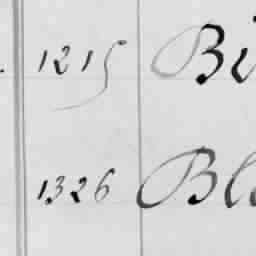 1215 Bi
1326 Bl